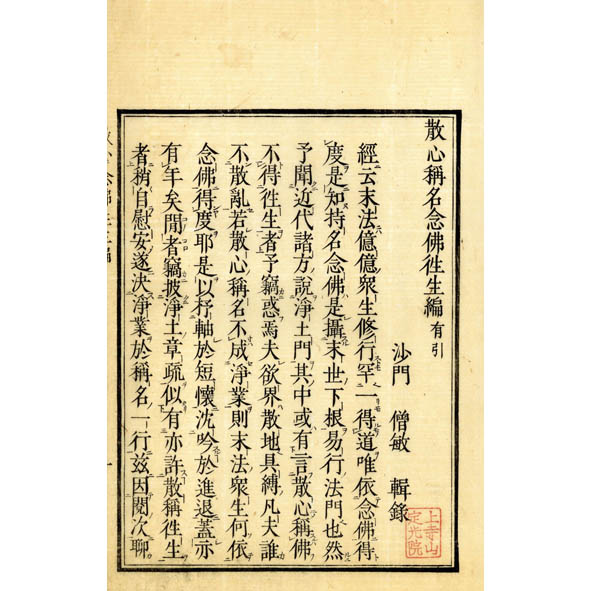 散心稱名念佛徃生編有引
沙門 僧敏 輯錄
經云末法億億衆生修行罕一得道唯依念佛得
度是知持名念佛是攝末世下根易行法門也然
予聞近代諸方說淨土門其中或有言散心稱佛
不得徃生者予竊惑焉夫欲界散地具縛凡夫誰
不散亂若散心稱名不成淨業則末法衆生何依
念佛得度耶是以杼軸於短懷沈吟於進退蓋亦
有年矣閒者竊披淨土章疏似有亦許散稱徃生
者稍自慰安遂決淨業於稱名一行兹因閱次聊
上寺山
定光院